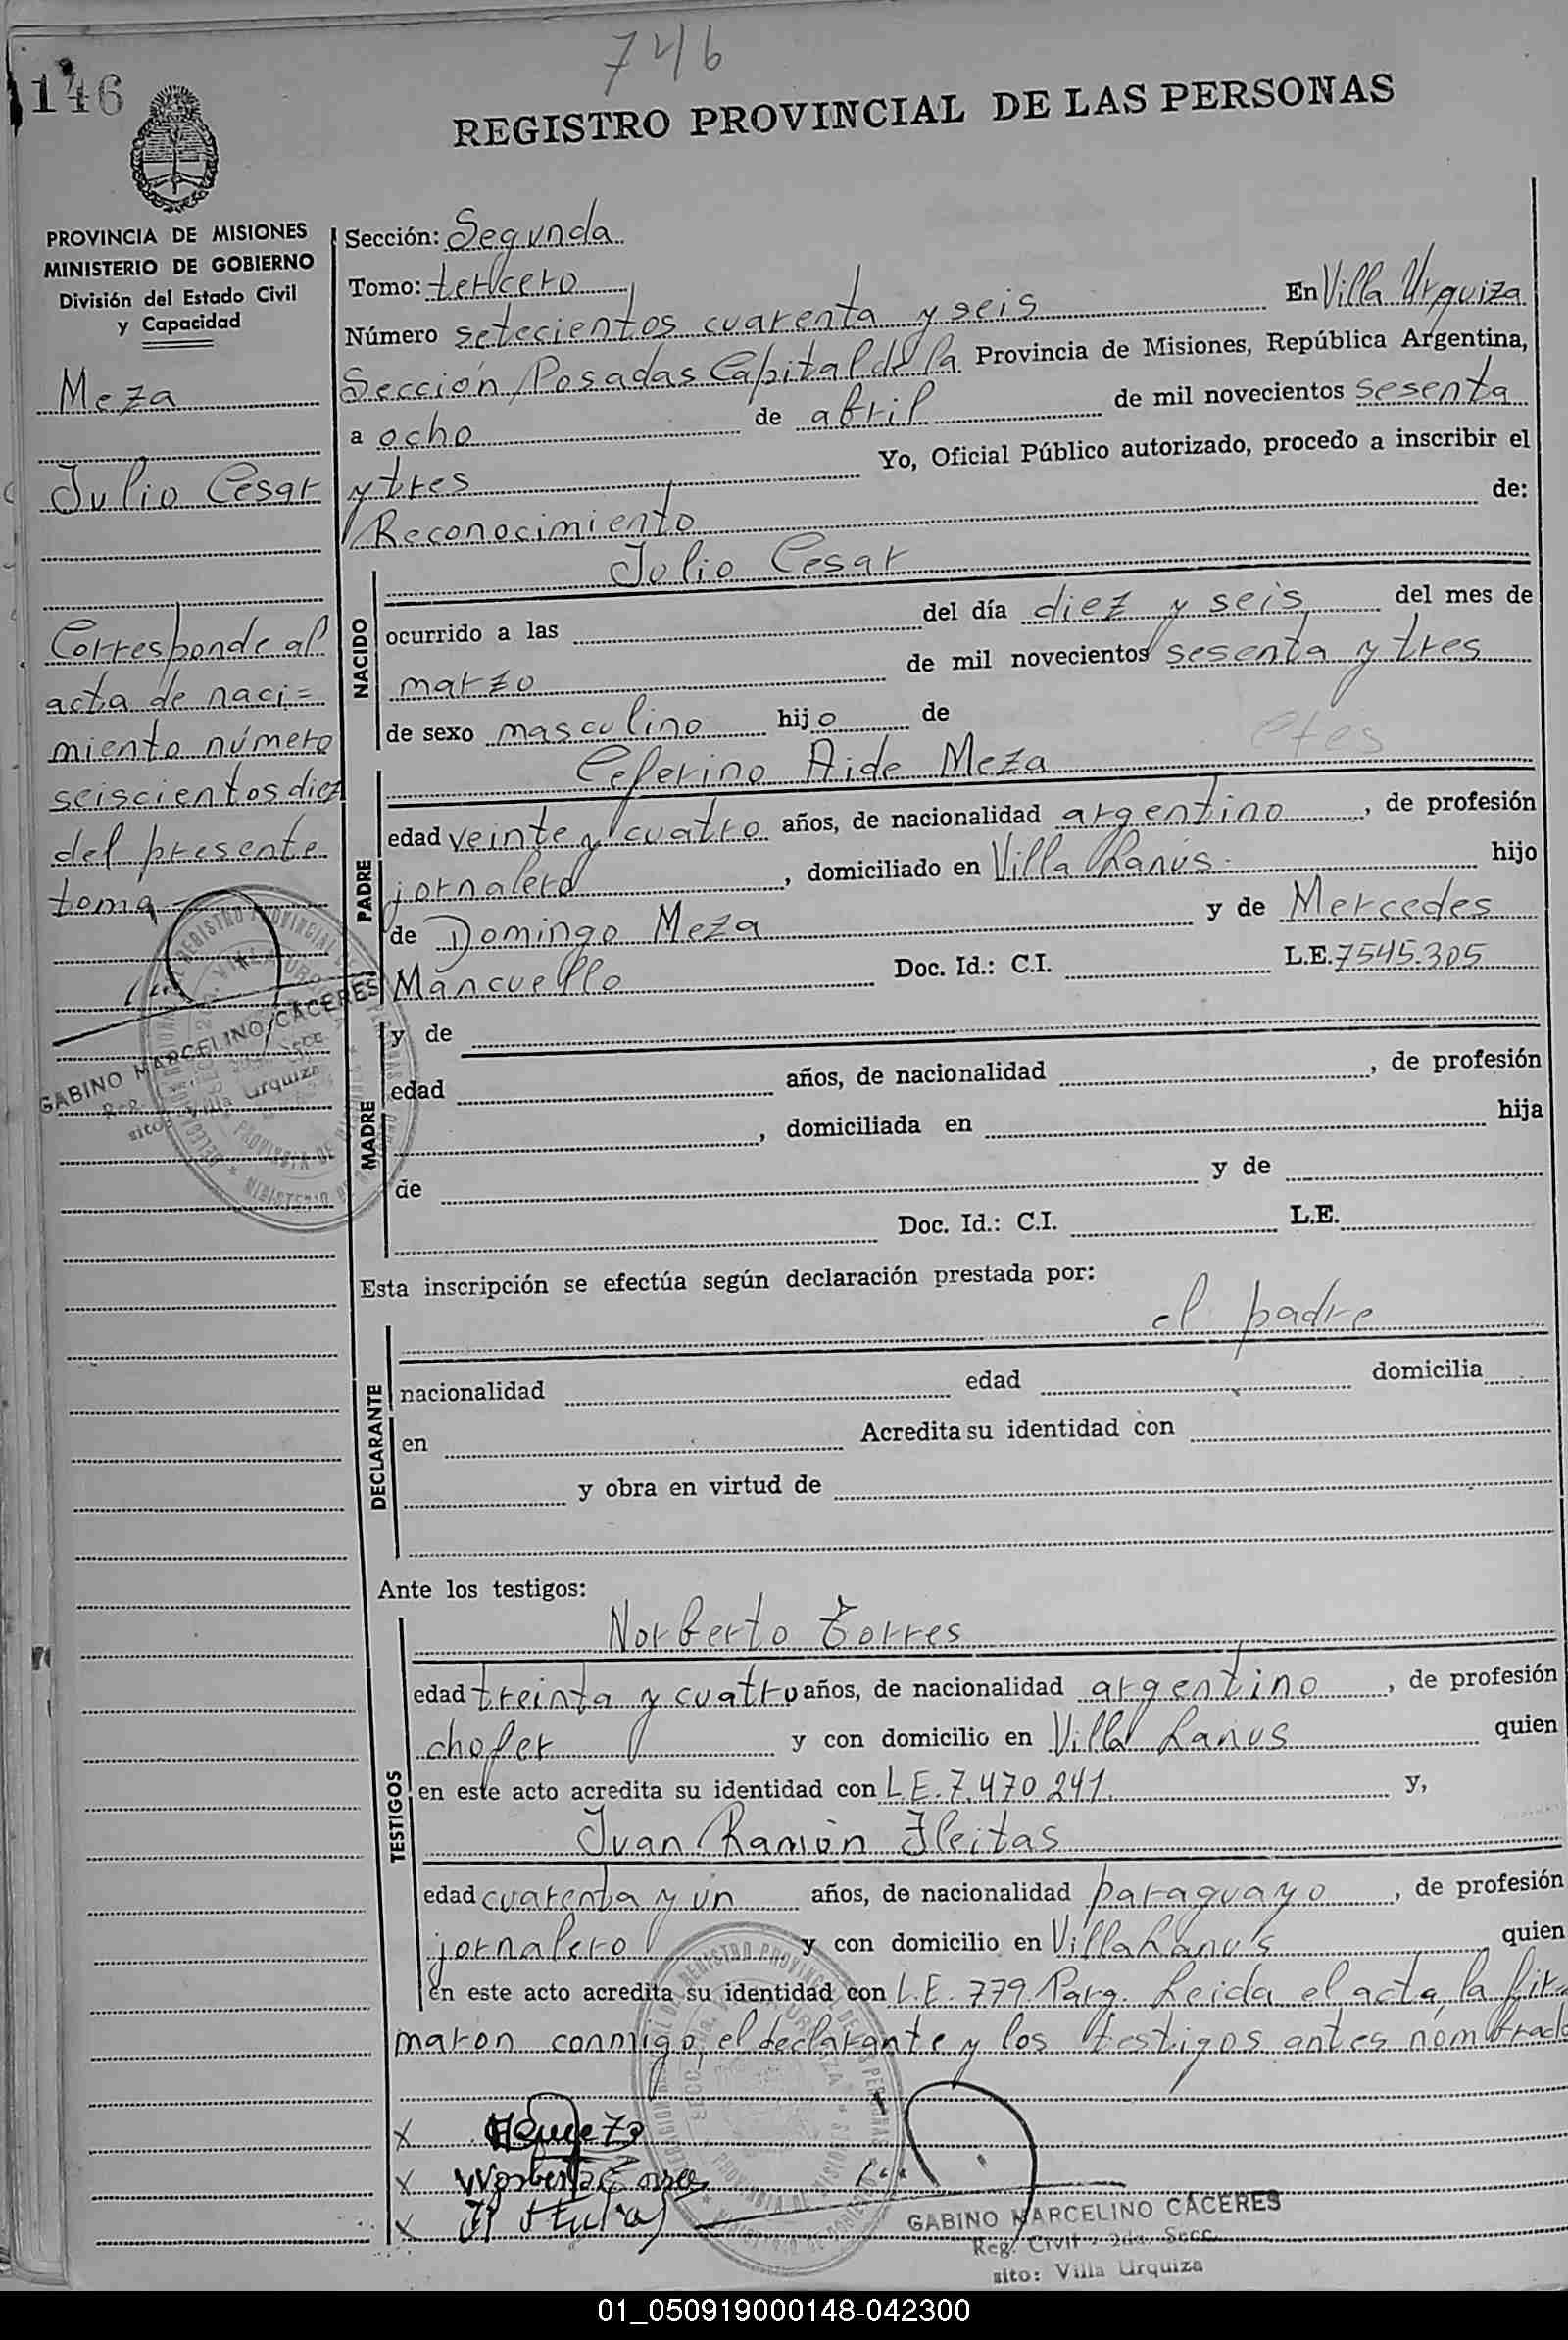 746
146
REGISTRO PROVINCIAL DE LAS PERSONAS
PROVINCIA DE MISIONES
MINISTERIO DE GOBIERNO
División del Estado Civil
y Capacidad
Meza
Julio Cesar
Corresponde al
acta de naci=
miento número
seiscientos diez
del presente
tomo
GABINO MARCELINO CACERES
Reg.
sito: Villa Urquiza
Sección: Segunda
Tomo: tercero
Número setecientos cuarenta y seis En Villa Urquiza
Sección, Posadas Capital de la Provincia de Misiones, República Argentina,
a ocho de abril de mil novecientos sesenta
y tres Yo, Oficial Público autorizado, procedo a inscribir el
Reconocimiento de:
NACIDO
Julio Cesar
ocurrido a las del día diez y seis del mes de
marzo de mil novecientos sesenta y tres
de sexo masculino hijo de
PADRE
Ceferino Aide Meza
edad veinte y cuatro años, de nacionalidad argentino, de profesión
jornalero, domiciliado en Villa Lanús hijo
de Domingo Meza y de Mercedes
Mancuello Doc. Id.: C.I. L.E. 7545.305
MADRE
y de
edad años, de nacionalidad , de profesión
, domiciliada en hija
de y de
Doc. Id.: C.I. L.E.
Esta inscripción se efectúa según declaración prestada por:
DECLARANTE
el padre
nacionalidad edad domicilia
en Acredita su identidad con
y obra en virtud de
Ante los testigos:
TESTIGOS
Norberto Torres
edad treinta y cuatro años, de nacionalidad argentino, de profesión
chofer y con domicilio en Villa Lanus quien
en este acto acredita su identidad con L.E. 7.470.241. y,
Juan Ramón Fleitas
edad cuarenta y un años, de nacionalidad paraguayo, de profesión
jornalero y con domicilio en Villa Lanús quien
en este acto acredita su identidad con L.E. 779. Parg. Leida el acta, la fir
maron conmigo, el declarante y los testigos antes nombrado
X
X Norberto Torres
X
GABINO MARCELINO CACERES
Reg. Civil - 2da. Secc.
sito: Villa Urquiza
01_050919000148-042300